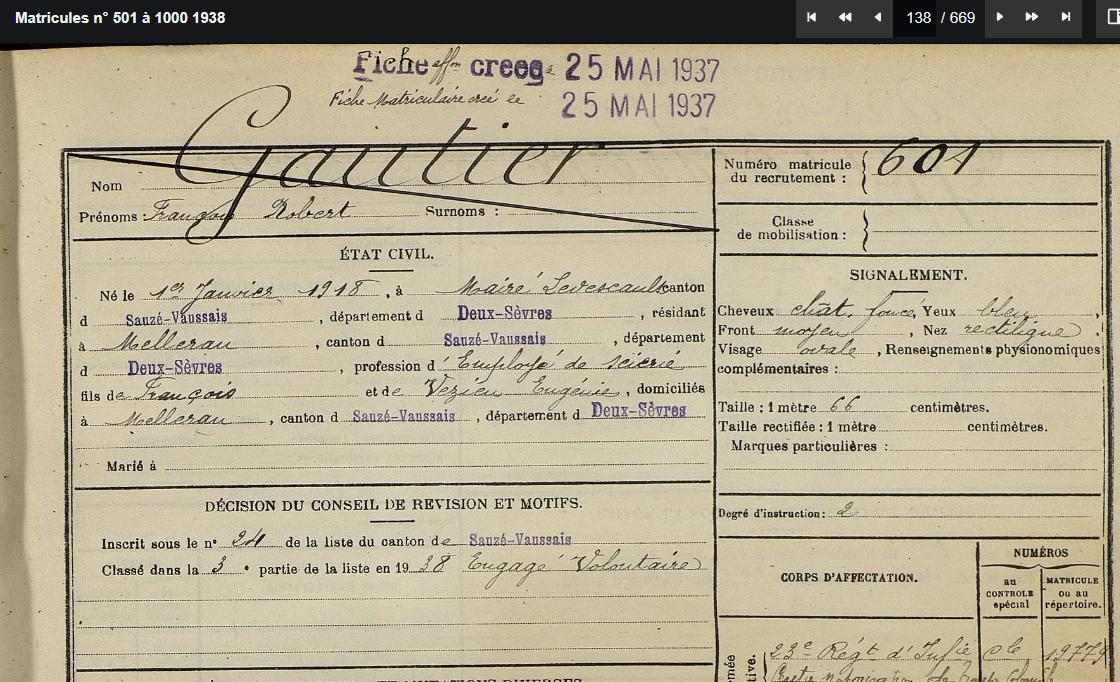 Matricules n° 501 à 1000 1938
138 / 669
Fiche affon creee 25 MAI 1937
Fiche Matriculaire créé le 25 MAI 1937
Nom Gautier
Prénoms : François Robert Surnoms :
Numéro matricule du recrutement : 601
Classe de mobilisation :
ÉTAT CIVIL.
Né le 1er Janvier 1918, à Mairé Levescault canton
d Sauzé-Vaussais, département d Deux-Sèvres, résidant
à Melleran, canton d Sauzé-Vaussais, département
d Deux-Sèvres, profession d'Employé de scierie
fils de François et de Vezien Eugénie, domiciliés
à Melleran, canton d Sauzé-Vaussais, département d Deux-Sèvres
Marié à
DÉCISION DU CONSEIL DE REVISION ET MOTIFS.
Inscrit sous le n° 24 de la liste du canton de Sauzé-Vaussais
Classé dans la 3 e partie de la liste en 1938 Engagé Volontaire
SIGNALEMENT.
Cheveux chât. foncé, Yeux bleu,
Front moyen, Nez rectiligne
Visage ovale, Renseignements physionomiques
complémentaires :
Taille : 1 mètre 66 centimètres.
Taille rectifiée : 1 mètre centimètres.
Marques particulières :
Degré d'instruction : 2
CORPS D'AFFECTATION.
NUMÉROS
au CONTROLE spécial
MATRICULE ou au répertoire.
23e Régt d'Infie